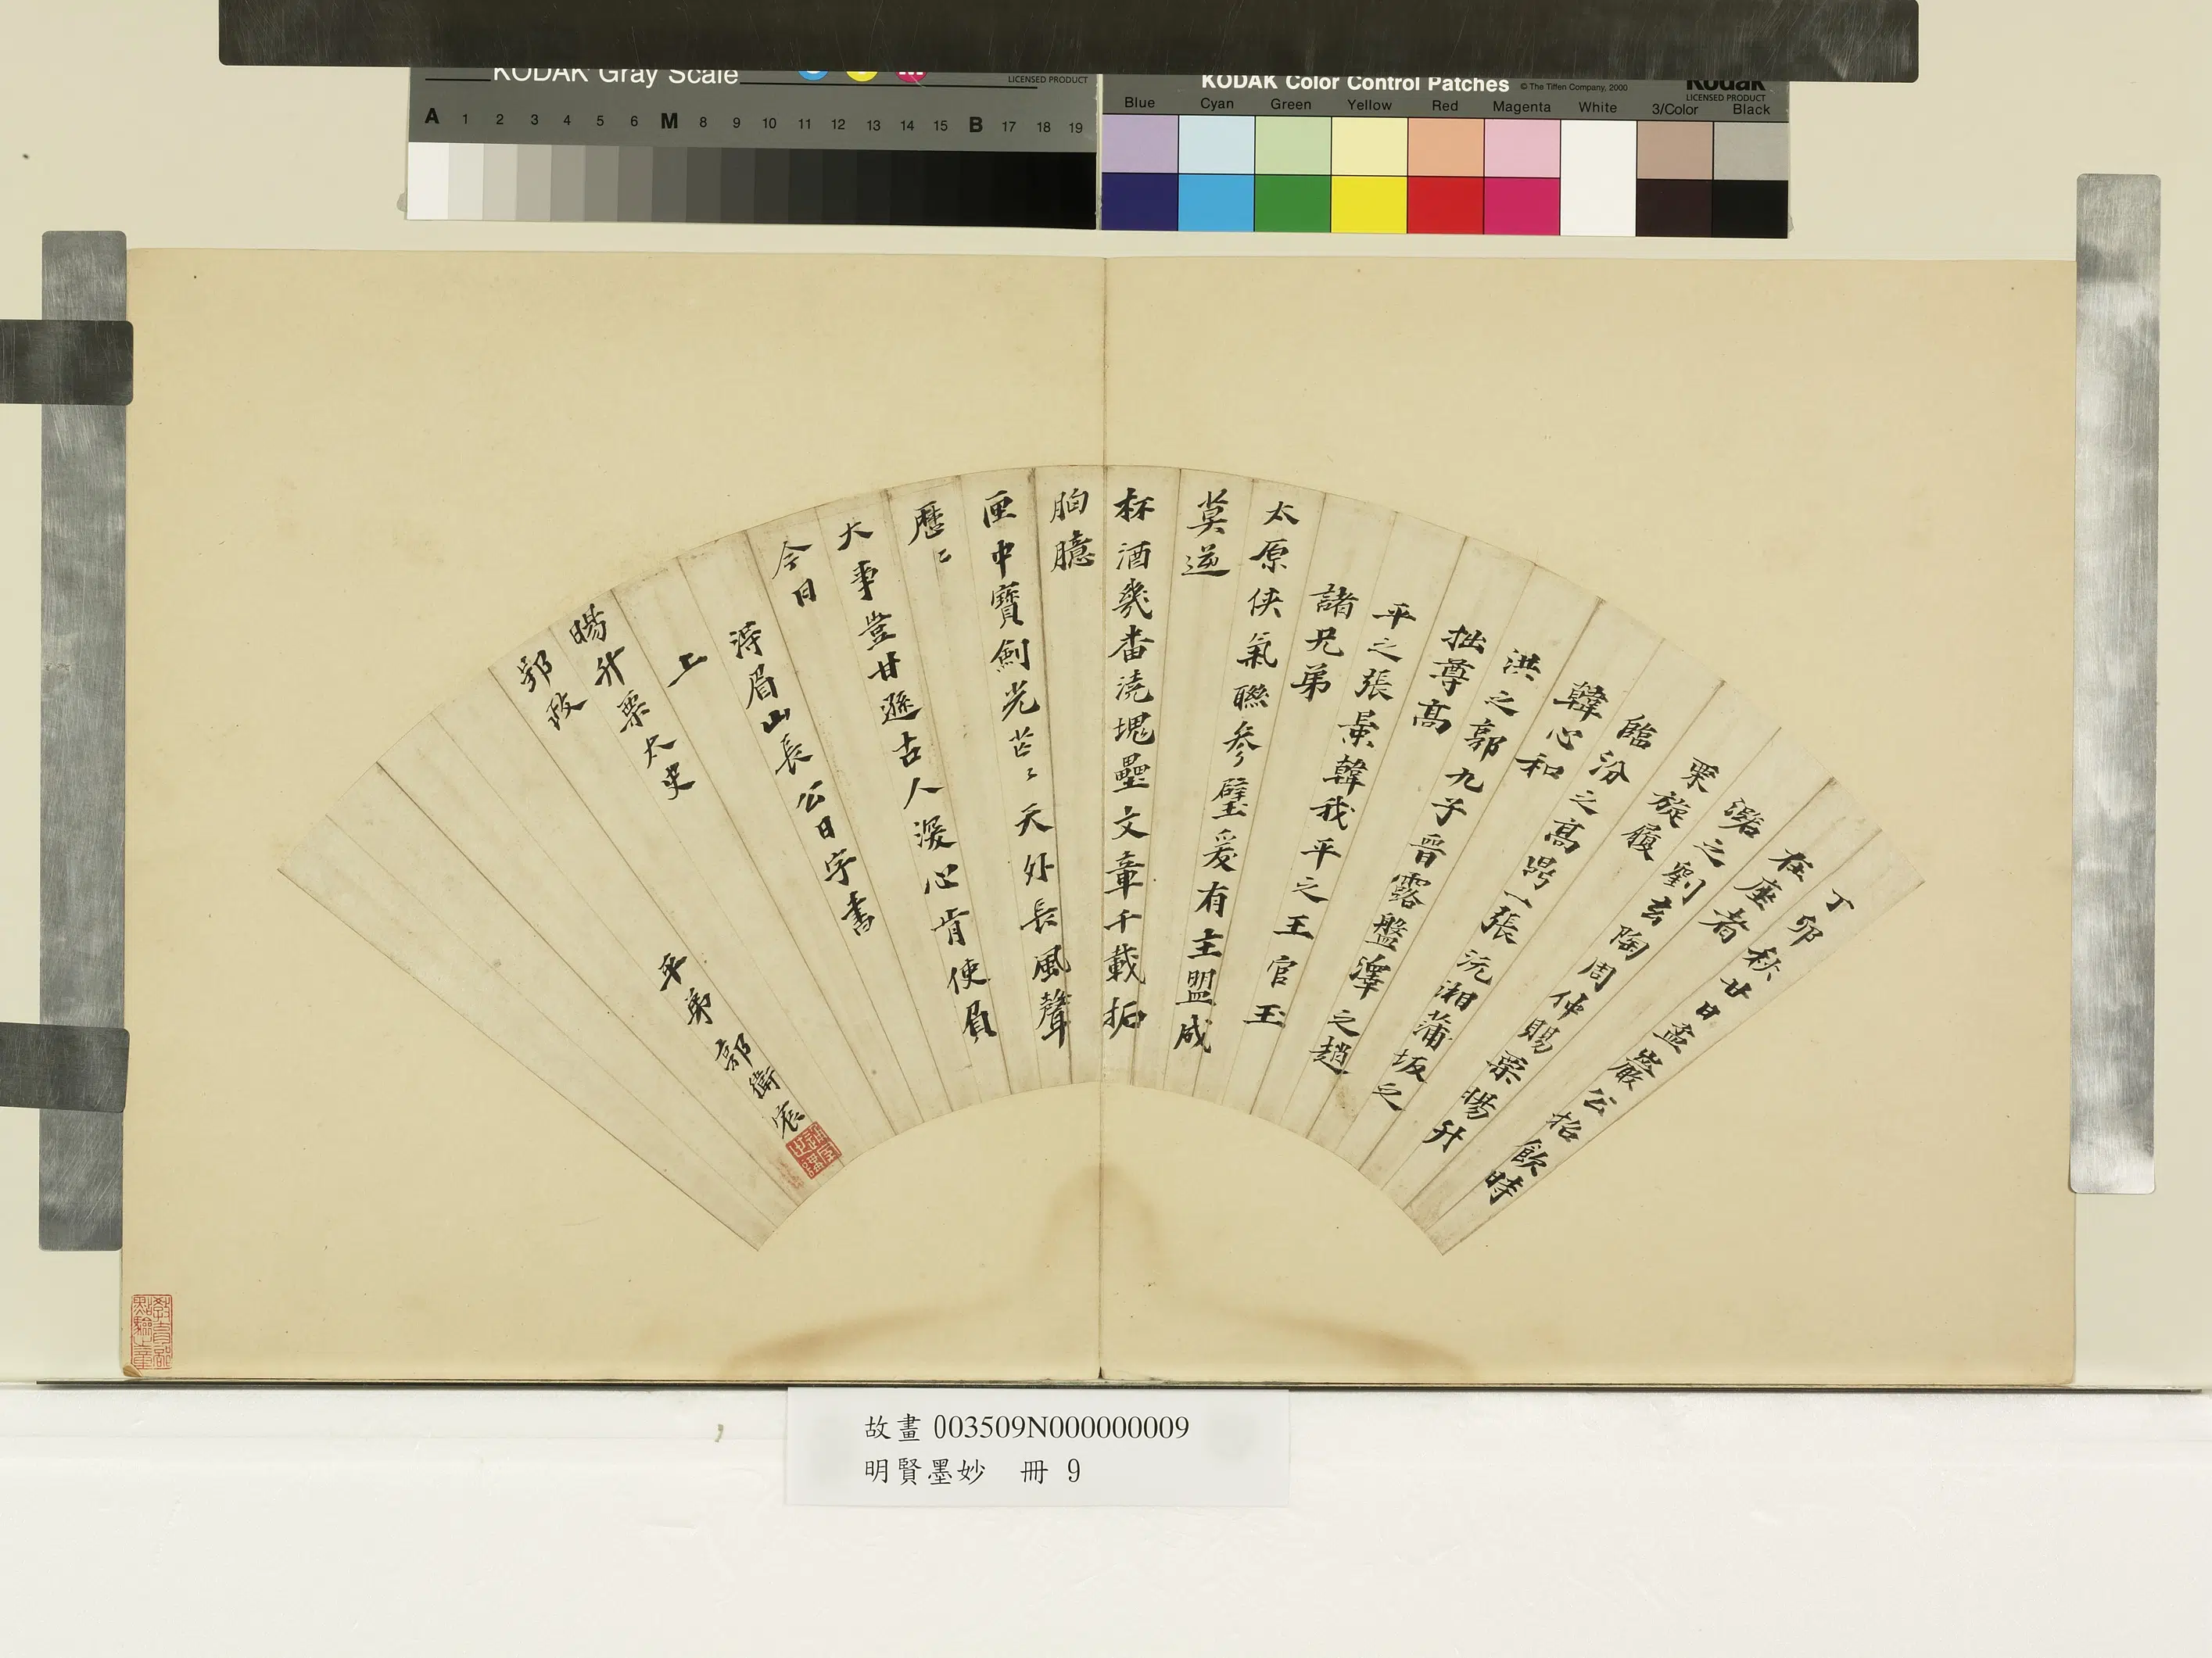 KODAK Gray Scale
LICENSED PRODUCT
A 1 2 3 4 5 6 M 8 9 10 11 12 13 14 15 B 17 18 19
KODAK Color Control Patches © The Tiffen Company, 2000 Kodak
LICENSED PRODUCT
Blue Cyan Green Yellow Red Magenta White 3/Color Black
丁卯秋廿日孟巖公招飲時
在座者
潞之劉玄陶周仲賜栗暘升
栗旋履
臨汾之高昺一張沅湘蒲坂之
韓心和
洪之郭九子晉露盤澤之趙
拙尊高
平之張景韓我平之王官玉
諸兄弟
太原侠氣聯參璧爰有主盟成
莫逆
杯酒幾番澆塊壘文章千載拓
胸臆
匣中寶劍光芒〻天外長風聲
歷〻
大事豈甘遜古人深心肯使負
今日
得眉山長公日字書
上
暘升栗太史
郢政
年弟郭衛宸
教育部點驗之章
故畫 003509N000000009
明賢墨妙 冊 9